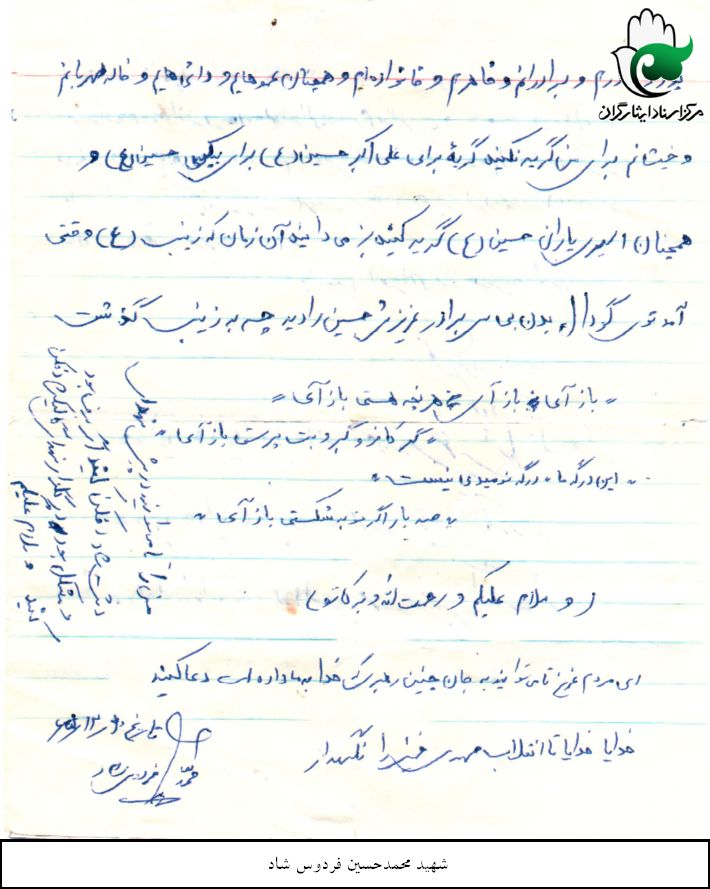 مرکز اسناد ایثارگران
و برادرانم و خواهرم و خانواده‌ام و همچنان عموهایم و دائی‌هایم و خاله مهربانم
و خیشانم برای من گریه نکنید گریهٔ برای علی اکبر حسین (ع) برای بیکسی حسین (ع) و
همچنان اسیری یاران حسین (ع) گریه کنید می دانید آن زمان که زینب (ع) وقتی
آمد توی گودال بدن بی سر برادر عزیزش حسین را دید چه به زینب گذشت
« باز آی باز آی هر چه هستی باز آی »
« گر کافر و گبر و بت پرستی باز آی »
« این درگه ما درگه نومیدی نیست »
« صد بار اگر توبه شکستی باز آی »
( و سلام علیکم و رحمت الله و برکاتو )
ای مردم تا می توانید به جان چنین رهبری که خدا به ما داده است دعا کنید
خدایا خدایا تا انقلاب مهدی خمینی را نگهدار
تاریخ
محمد فردوس شاد
من را تا می توانید در پیش شهدای
و سلام علیکم
شهید محمدحسین فردوس شاد